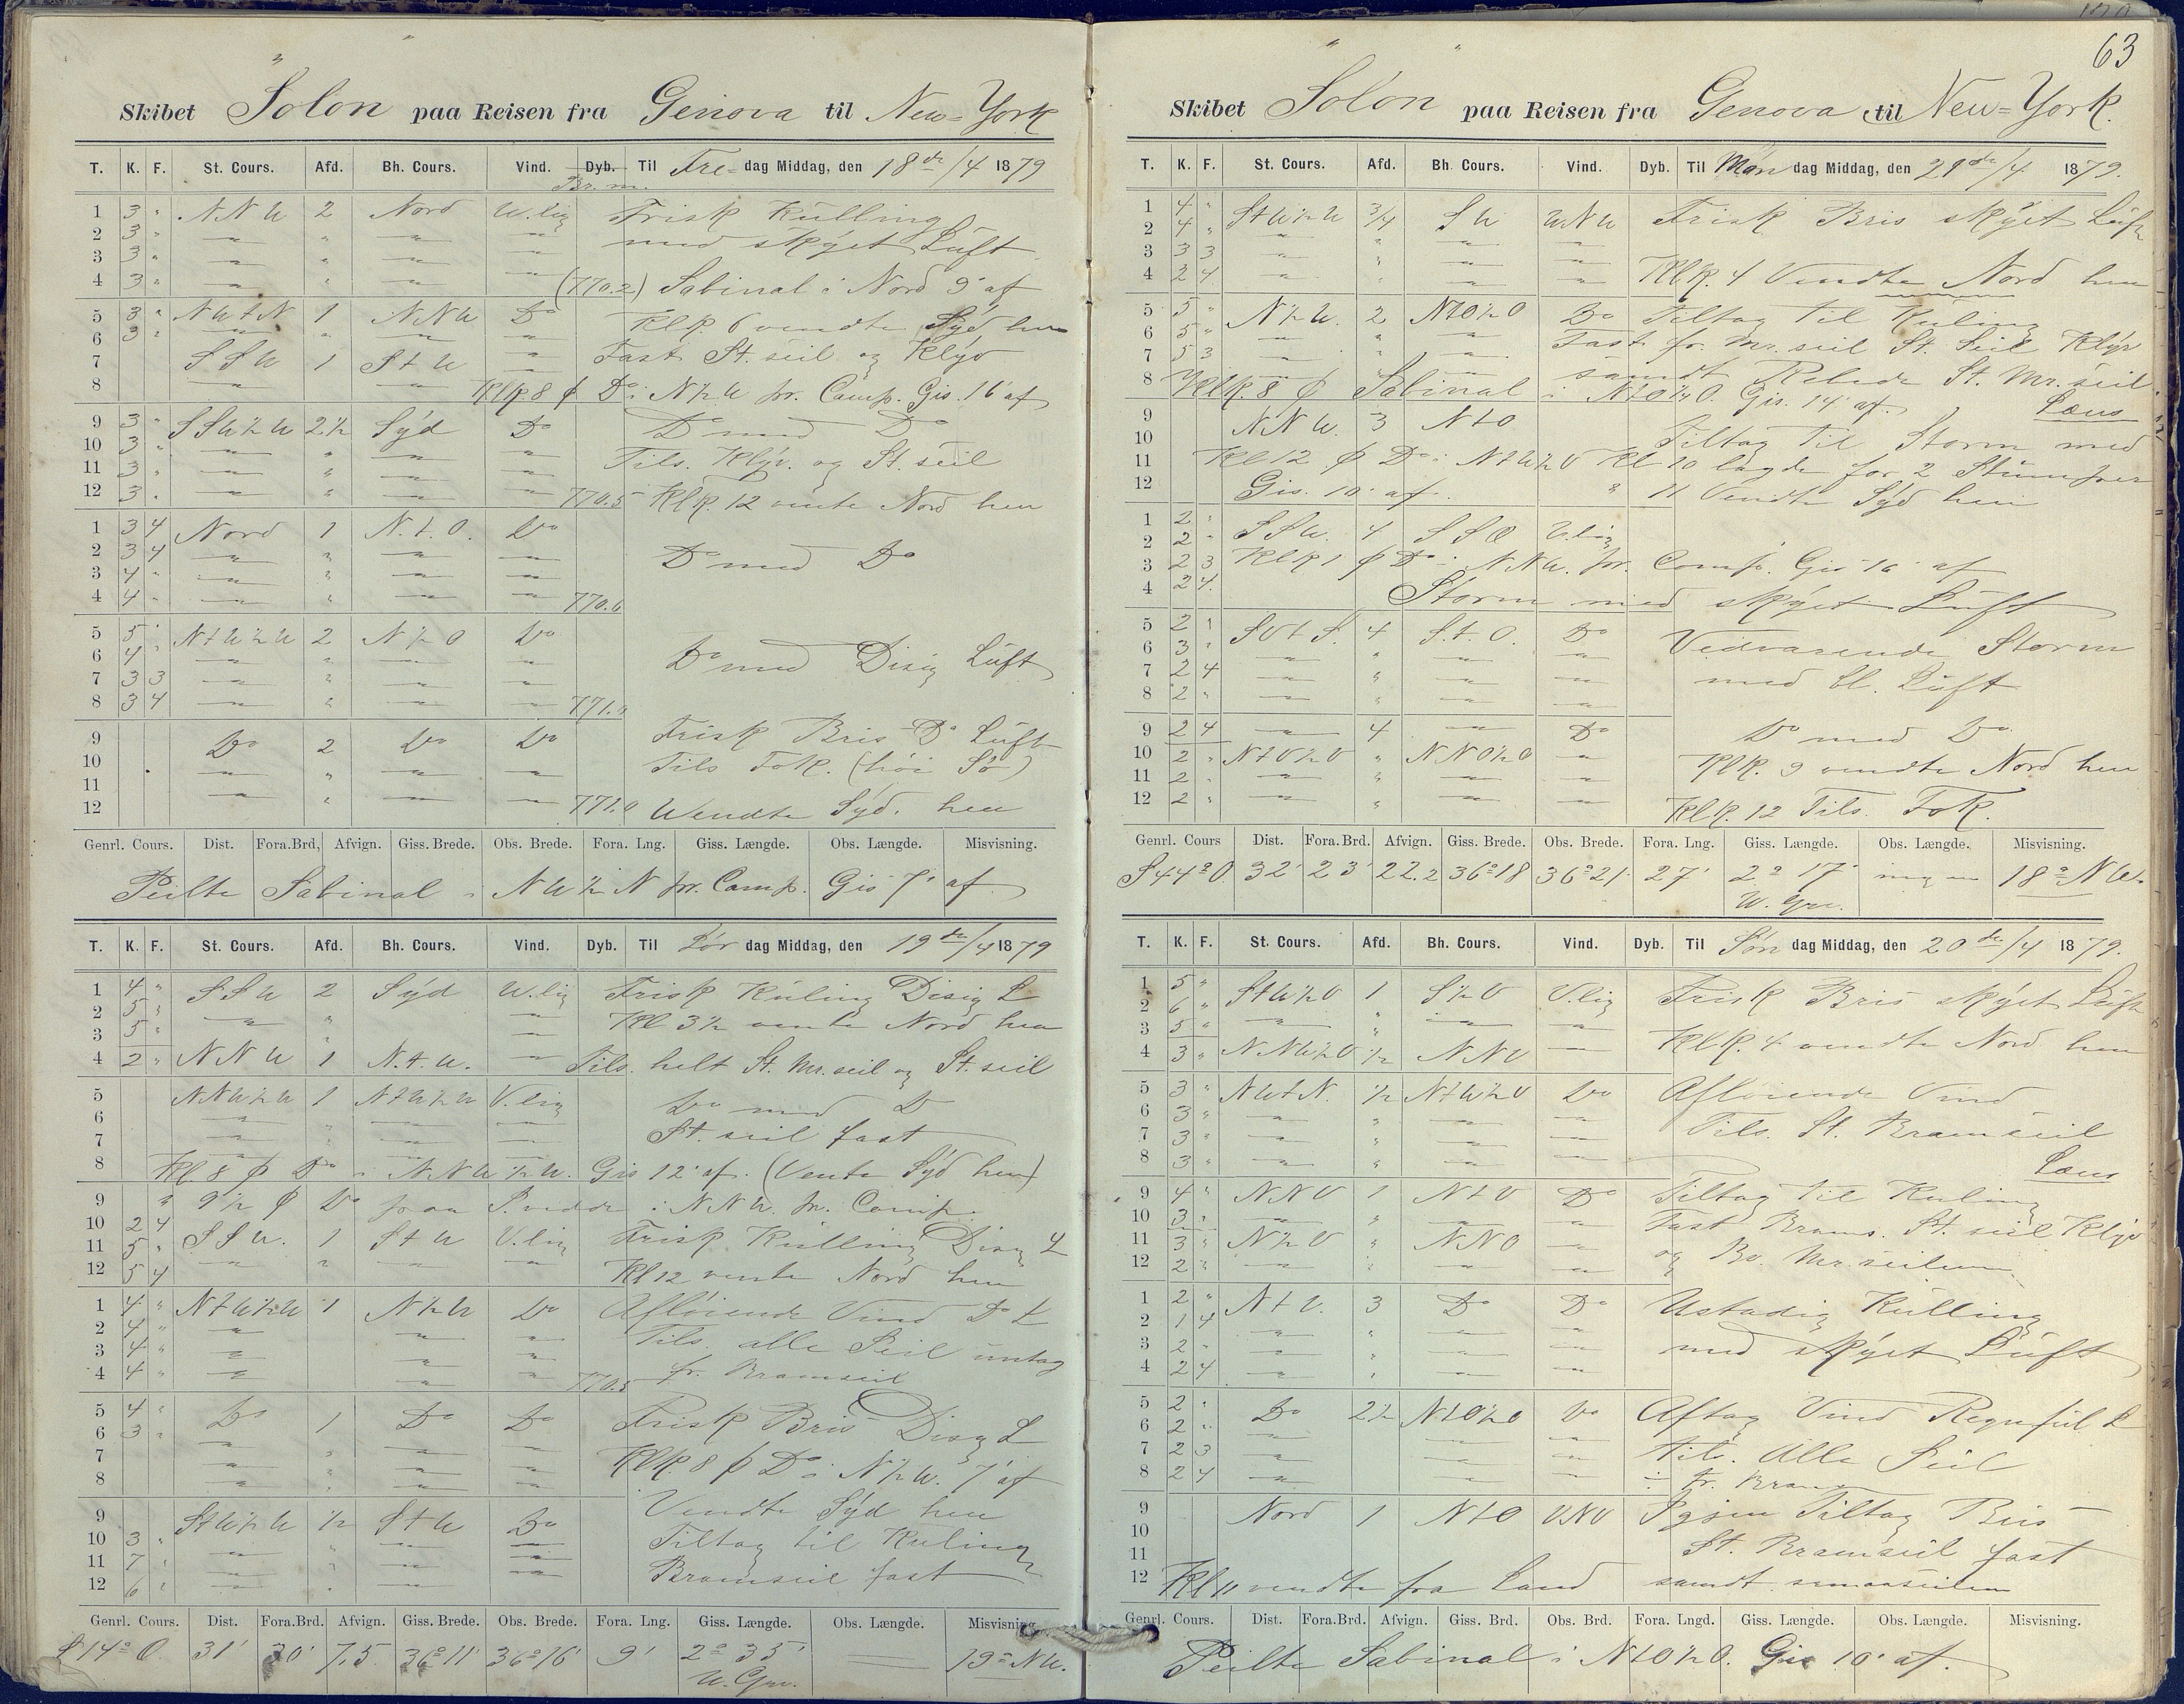 63
Skibet Solon paa Reisen fra Genova til New-York
T. K. F. St. Cours. Afd. Bh. Cours. Vind. Dyb. Til Fre- dag Middag, den 18de/4 1879
Br. m.
1 3 " NNW 2 Nord W.lig Frisk Kulling
2 3 " " " " " med skyet Luft
3 3 " " " " "
4 3 " " " " " (770.2) Sabinal i Nord 9' af
5 3 " NWtN 1 NNW Do Klk 6 vendte Syd hen
6 3 " " " " "
7 SSW 1 StW " Fast St. seil og Klyv
8 " " Klk 8 ϕ Do i N½W pr. Comp. Gis. 16' af
9 3 " SSW½W 2½ Syd Do Do med Do
10 3 " " " " " Tils. Klyv. og St. seil
11 3 " " " " "
12 3 " " " " " 770.5 Klk. 12 vente Nord hen
1 3 4 Nord 1 N.t.O. Do
2 3 4 " " " " Do med Do
3 4 " " " " "
4 4 " " " " " 770.6
5 5 " NtW½W 2 N½O Do
6 4 " " " " " Do med Disig Luft
7 3 3 " " " "
8 3 4 " " " " 771.0
9 Do 2 Do Do Frisk Bris Do Luft
10 " " " " Tils Fok. (høi Sø)
11
12 " " " " 771.0 Wendte Syd. hen
Genrl. Cours. Dist. Fora.Brd. Afvign. Giss. Brede. Obs. Brede. Fora. Lng. Giss. Længde. Obs. Længde. Misvisning.
Peilte Sabinal i NW½N pr. Comp. Gis 7' af
T. K. F. St. Cours. Afd. Bh. Cours. Vind. Dyb. Til Lør dag Middag, den 19de/4 1879
1 4 " SSW 2 Syd W.lig Frisk Kuling Disig L
2 5 " " " " Kl 3½ vente Nord hen
3 5 " " "
4 2 " NNW 1 N.t.W. " Tils. helt St. Mr. seil og St. seil
5 NNW½W 1 NtW½W V.lig Do med D
6 " " " " St. seil fast
7 " " " "
8 Kl. 8 ϕ Do i NNW½W. Gis 12' af. (Vente Syd hen)
9 " 9½ ϕ Do paa i NNW. pr. Comp.
10 2 4 SSW. 1 StW V.lig Frisk Kulling Disig L
11 5 "
12 5 4 " " " " Kl 12 vente Nord hen
1 4 " NtW½W 1 N½W Do Afløiende Vind Do L
2 4 " " " " Tils alle Seil untag
3 4 " " " "
4 4 " " " " 770.5 fr. Bramseil
5 4 " Do 1 Do Do Frisk Bris Disig L
6 3 " " " "
7 " " " " Klk. 8 ϕ Do i N½W. 7' af
8 " " " "
9 StW½W ½ StW Do Vendte Syd hen
10 3 " " " " Tiltog til Kuling
11 7 " " " " "
12 6 " " " " Bramseil fast
Genrl. Cours. Dist. Fora.Brd. Afvign. Giss. Brede. Obs. Brede. Fora. Lng. Giss. Længde. Obs. Længde. Misvisning.
S 14° O. 31' 30' 7,5 36°11' 36°16' 9' 2° 35' 19° NW.
W. Grw.
Skibet Solon paa Reisen fra Genova til New-York.
T. K. F. St. Cours. Afd. Bh. Cours. Vind. Dyb. Til Man dag Middag, den 21de/4 1879.
1 4 " StW½W ¾ SW WNW Frisk Bris skyet Luft
2 4 " " " " "
3 3 3 " " " "
4 2 4 " " " " Klk. 4 Vendte Nord hen
5 5 " N½W. 2 NtO½O Do Tiltog til Kuling
6 5 " " " " " Fast fr. Mr. seil St. Seil Klyv
7 5 3 " " " samdt Rebede St. Mr. seil
8 Klk. 8 ϕ Sabinal i NtO½O. Gis. 14' af. Læns
9 NNW. 3 NtO
10 Tiltog til Storm med
11 Kl 12 ϕ Do i NtW½O Kl 10 lagde for 2
12 Gis. 10' af. " 11 Vendte Syd hen
1 2 " SSW. 4 SSO V.lig
2 2 "
3 2 3 Klk 1 ϕ Do i NNW. pr. Comp. Gis 16' af
4 2 4 Storm med skyet Luft
5 2 " SOtS. 4 S.t.O. Do Vedvarende Storm
6 3 " " " " "
7 2 4 " " " " med bl. Luft
8 2 " " " "
9 2 4 " 4 " Do Do med Do
10 2 " NtO½O " NNO½O " Klk. 9 vendte Nord hen
11 2 " " " " "
12 2 " " " " Klk. 12 Tils. Fok.
Genrl. Cours Dist. Fora.Brd. Afvign. Giss. Brede. Obs. Brede. Fora. Lng. Giss. Længde. Obs. Længde. Misvisning.
S 44° O. 32' 23' 22.2 36°18 36°21' 27' 2° 17' ingen 18° NW.
W. Grw.
T. K. F. St. Cours. Afd. Bh. Cours. Vind. Dyb. Til Søn dag Middag, den 20de/4 1879.
1 5 " StW½O 1 S½O V.lig Frisk Bris skyet Luft
2 6 "
3 5 " " " " "
4 3 " NNW½O ½ NNO " Klk. 4 vendte Nord hen
5 3 " NWtN. ½ NtW½O Do Afløiende Vind
6 3 " " " " " Tils. St. Bramseil
7 3 " " " " "
8 3 " " " " " Læns
9 4 " NNO 1 NtO Do Tiltog til Kuling
10 3 " " " " " Fast Brams. St. seil Klyv
11 3 " N½O " NNO " og Mr. seilene
12 2 " " " " "
1 2 " NtO. 3 Do Do Ustadig Kulling
2 1 4 " " " "
3 2 " " " " " med skyet Luft
4 2 4 " " "
5 2 " Do 2½ NtO½O Do Aftog Vind Regnful L
6 2 " " " "
7 2 3 " " " Tils. Alle Seil
8 2 4 " " " fr. Bram
9 Nord 1 NtO ONO Igjen Tiltog Bris
10
11 St. Bramseil fast
12 Kl 11 vendte fra Land samdt smaaseilene
Genrl. Cours. Dist. Fora.Brd. Afvign. Giss. Brd. Obs. Brd. Fora. Lngd. Giss. Længde. Obs. Længde. Misvisning.
Peilte Sabinal i NtO½O. Gis 10' af.